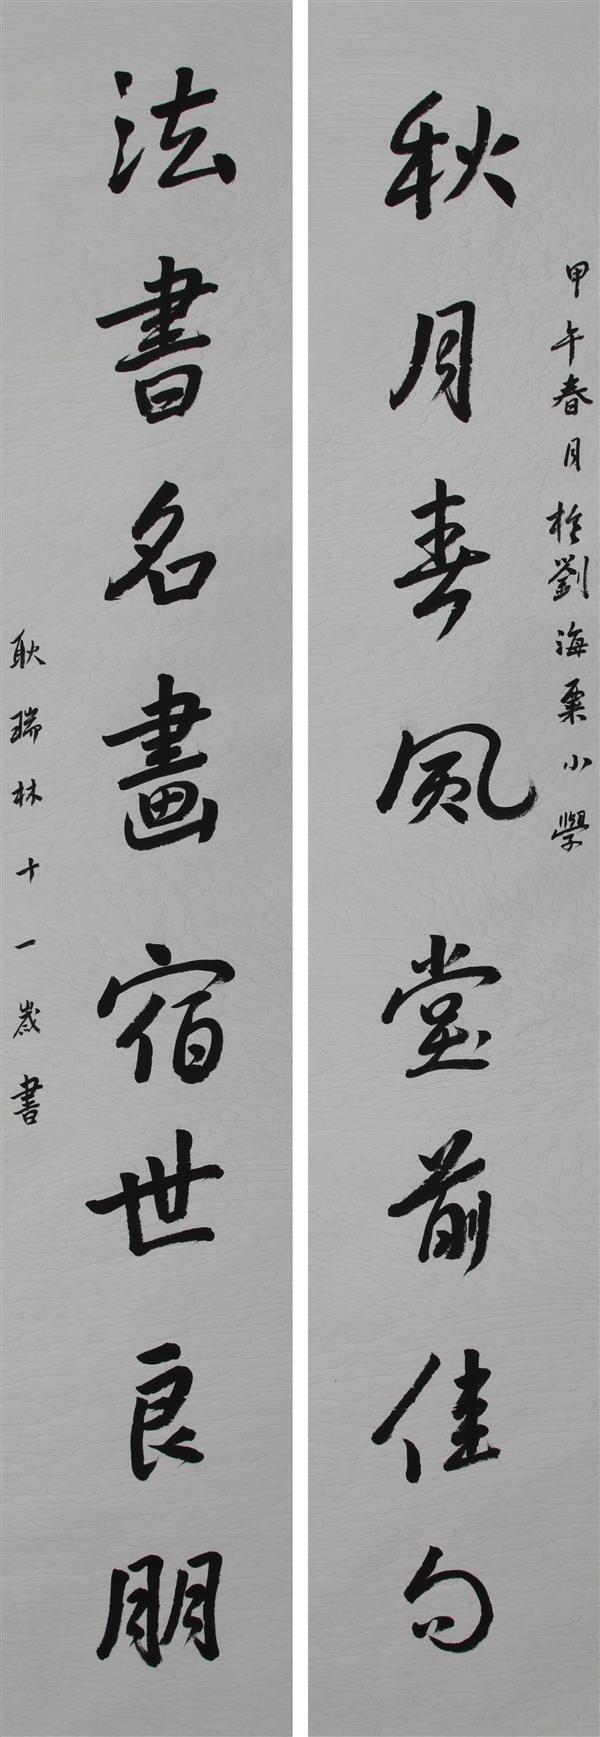 甲午春月於劉海粟小學
秋月春風堂前佳句
法書名畫宿世良朋
耿瑞林十一歲書